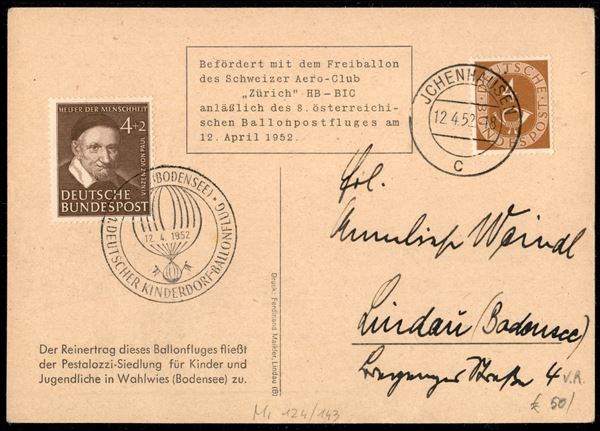 Befördert mit dem Freiballon
des Schweizer Aero-Club
„Zürich" HB-BIC
anläßlich des 8. österreichi-
schen Ballonpostfluges am
12. April 1952.
JCHENHAUSEN
12.4.52
C
DEUTSCHE
BUNDESPOST
HELFER DER MENSCHHEIT
4+2
VINZENZ VON PAUL
DEUTSCHE
BUNDESPOST
(BODENSEE) • 2. DEUTSCHER KINDERDORF-BALLONFLUG
12.4.1952
Frl.
Anneliese Weindl
Lindau (Bodensee)
Straße 4
Druck: Ferdinand Maikler, Lindau (B)
Der Reinertrag dieses Ballonfluges fließt
der Pestalozzi-Siedlung für Kinder und
Jugendliche in Wahlwies (Bodensee) zu.
V.R.
Mi 124/143
€ 50/